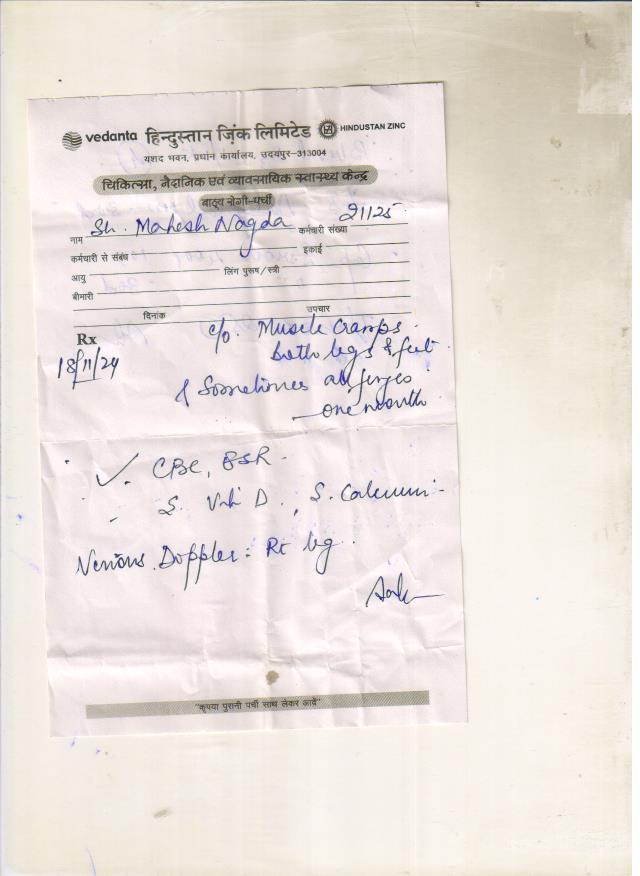 vedanta हिन्दुस्तान ज़िंक लिमिटेड HINDUSTAN ZINC
यशद भवन, प्रधान कार्यालय, उदयपुर-313004
चिकित्सा, नैदानिक एवं व्यावसायिक स्वास्थ्य केन्द्र
बाह्य रोगी-पर्ची
नाम Sh. Mahesh Nagda कर्मचारी संख्या 21125
कर्मचारी से संबंध इकाई
आयु लिंग पुरूष/स्त्री
बीमारी
दिनांक उपचार
Rx
18/11/24 c/o. Muscle Cramps.
both legs & feet
& Sometimes
one month
CBC, ESR
S. Vit D, S. Calcium
Venous Doppler: Rt leg.
"कृपया पुरानी पर्ची साथ लेकर आवें"